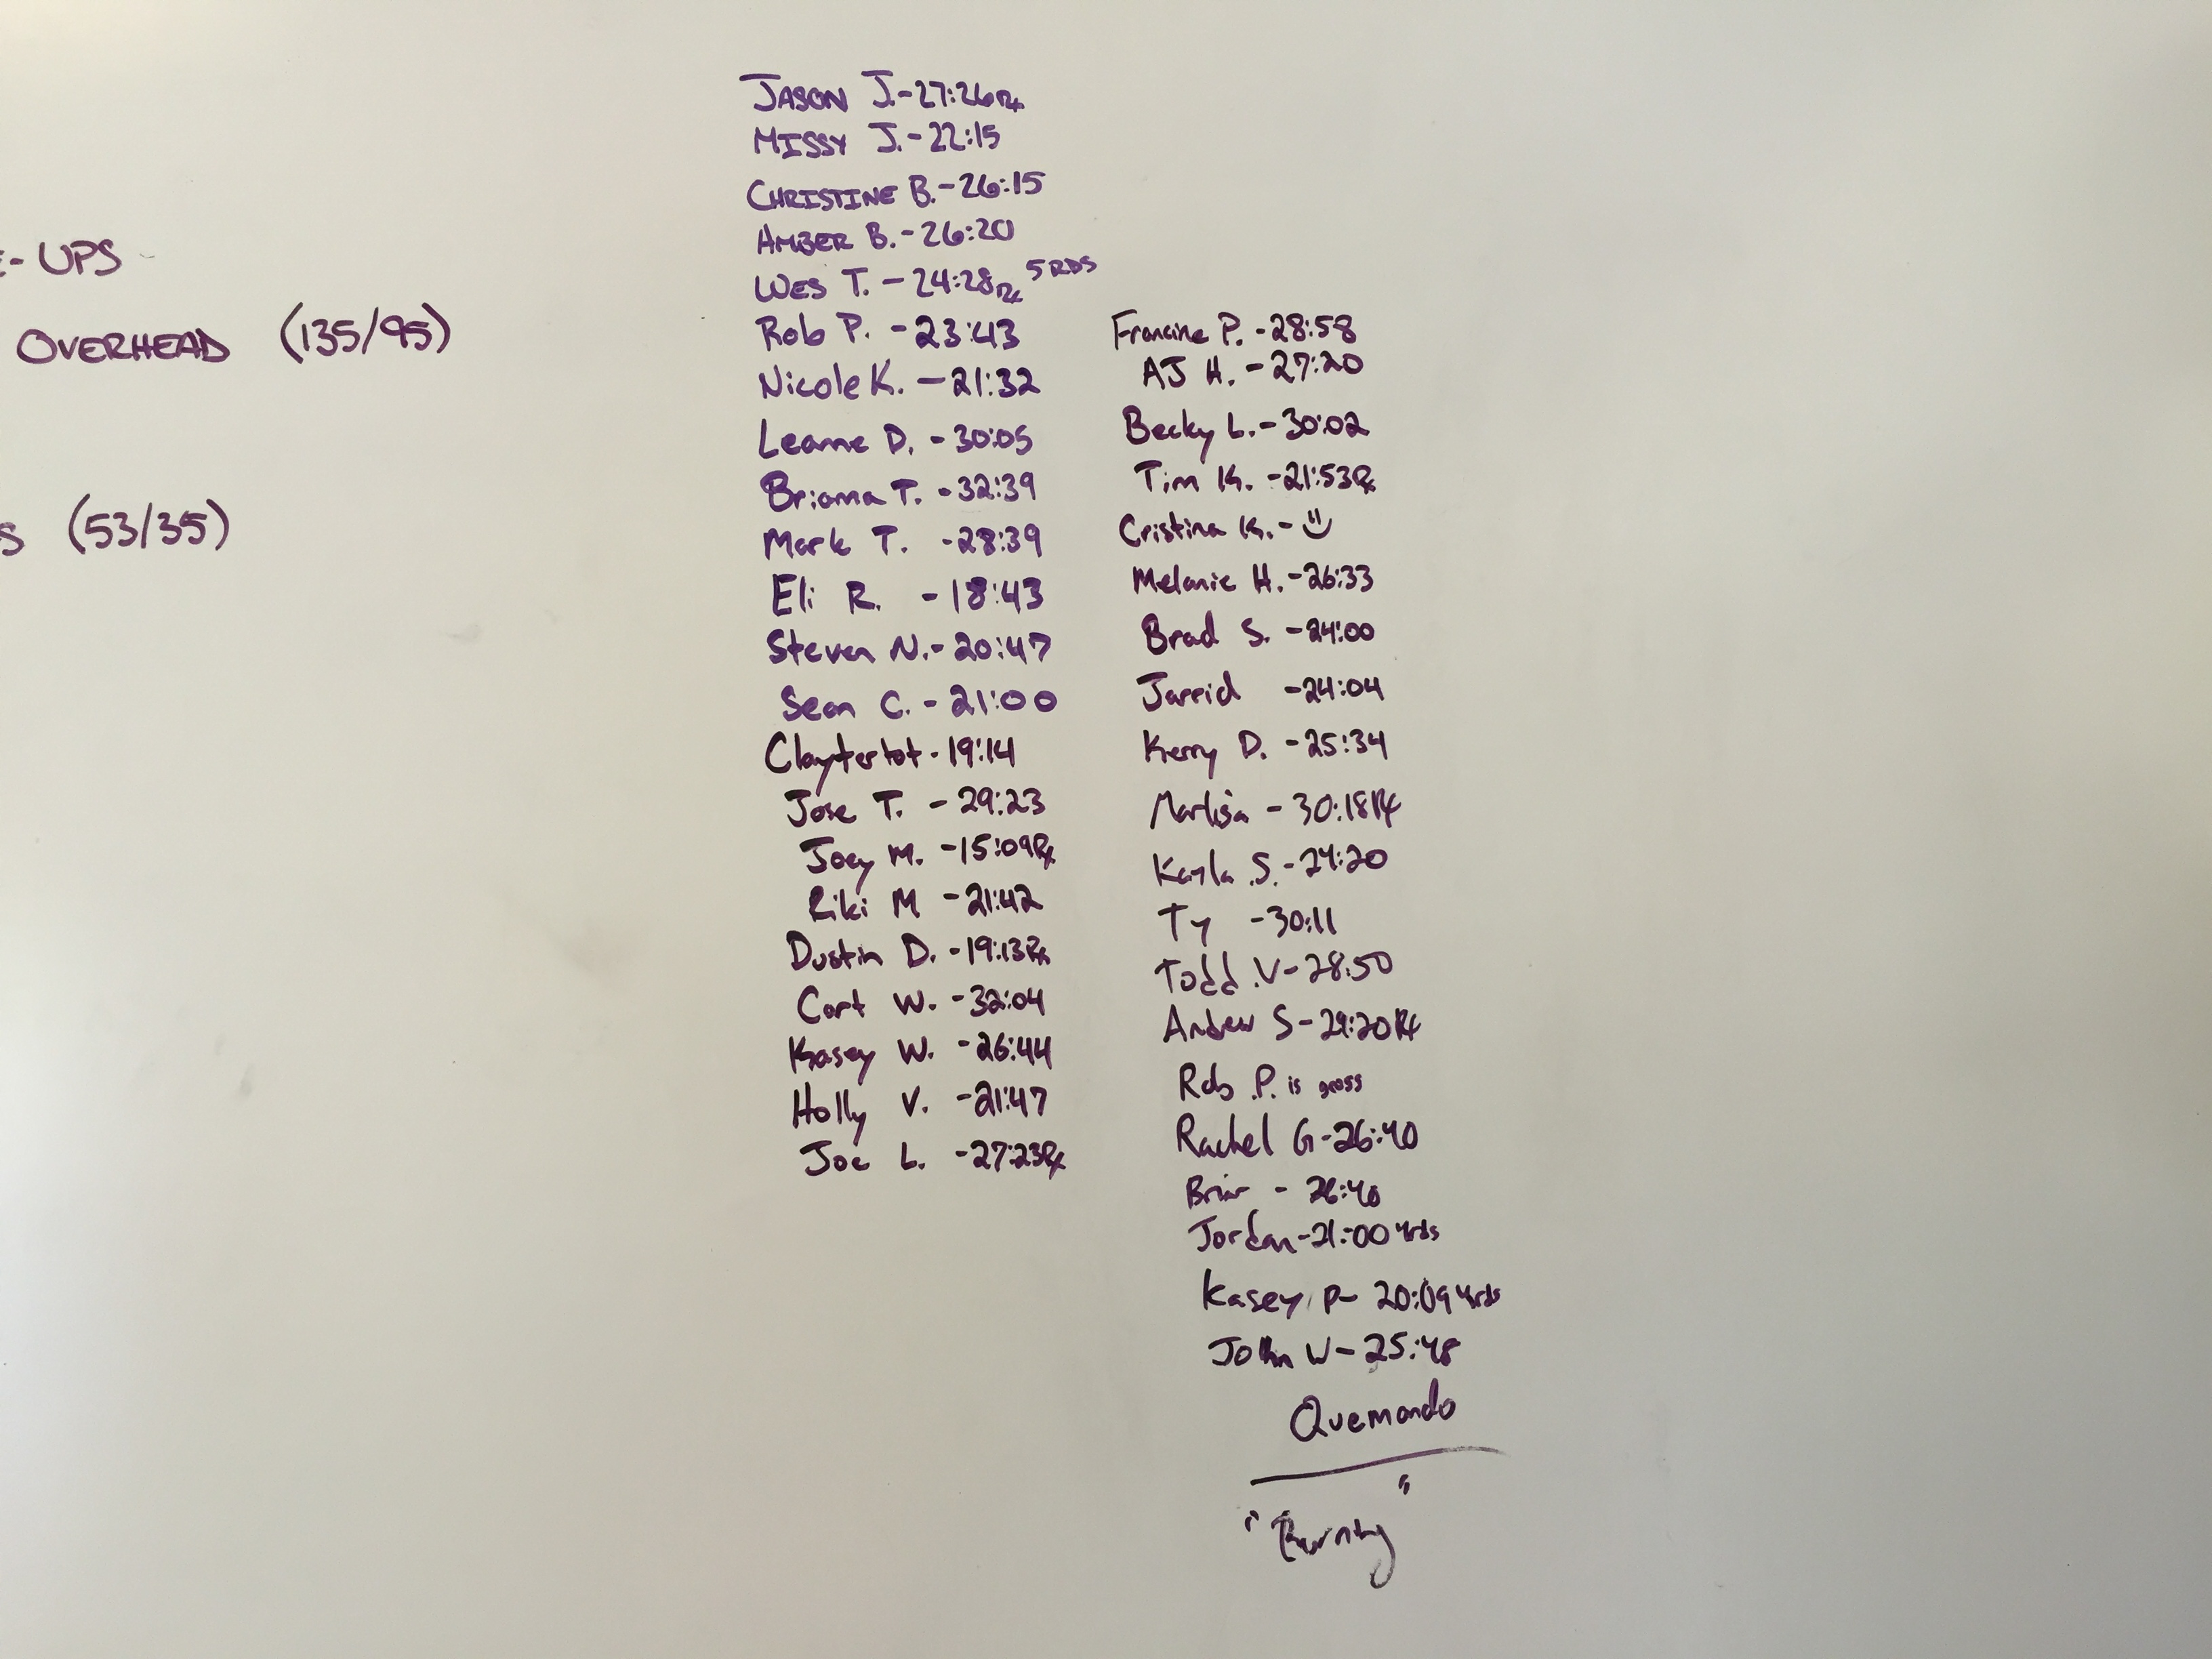 E-UPS
OVERHEAD (135/95)
S (53/35)
JASON J.-27:26Rx
MISSY J.-22:15
CHRISTINE B.-26:15
AMBER B.-26:20
WES T. -24:28Rx 5RDS
Rob P. -23:43
Nicole K. -21:32
Leanne D. -30:05
Brianna T. -32:39
Mark T. -28:39
Eli R. -18:43
Steven N.-20:47
Sean C. -21:00
Claytertot-19:14
Jose T. -29:23
Joey M. -15:09Rx
Riki M -21:42
Dustin D. -19:13Rx
Cort W. -32:04
Kasey W. -26:44
Holly V. -21:47
Joe L. -27:23Rx
Francine P. -28:58
AJ H. -27:20
Becky L.-30:02
Tim K. -21:53Rx
Cristina K.-
Melanie H.-26:33
Brad S. -24:00
Jarrid -24:04
Kerry D. -25:34
Marlisa -30:18Rx
Kayla .S.-24:20
Ty -30:11
Todd .V-28:50
Andrew S-29:20Rx
Rob .P. is gross
Rachel G-26:40
Brian - 26:40
Jordan-21:00 4rds
Kasey P- 20:09 4rds
John W- 25:48
Quemando
"Burning"